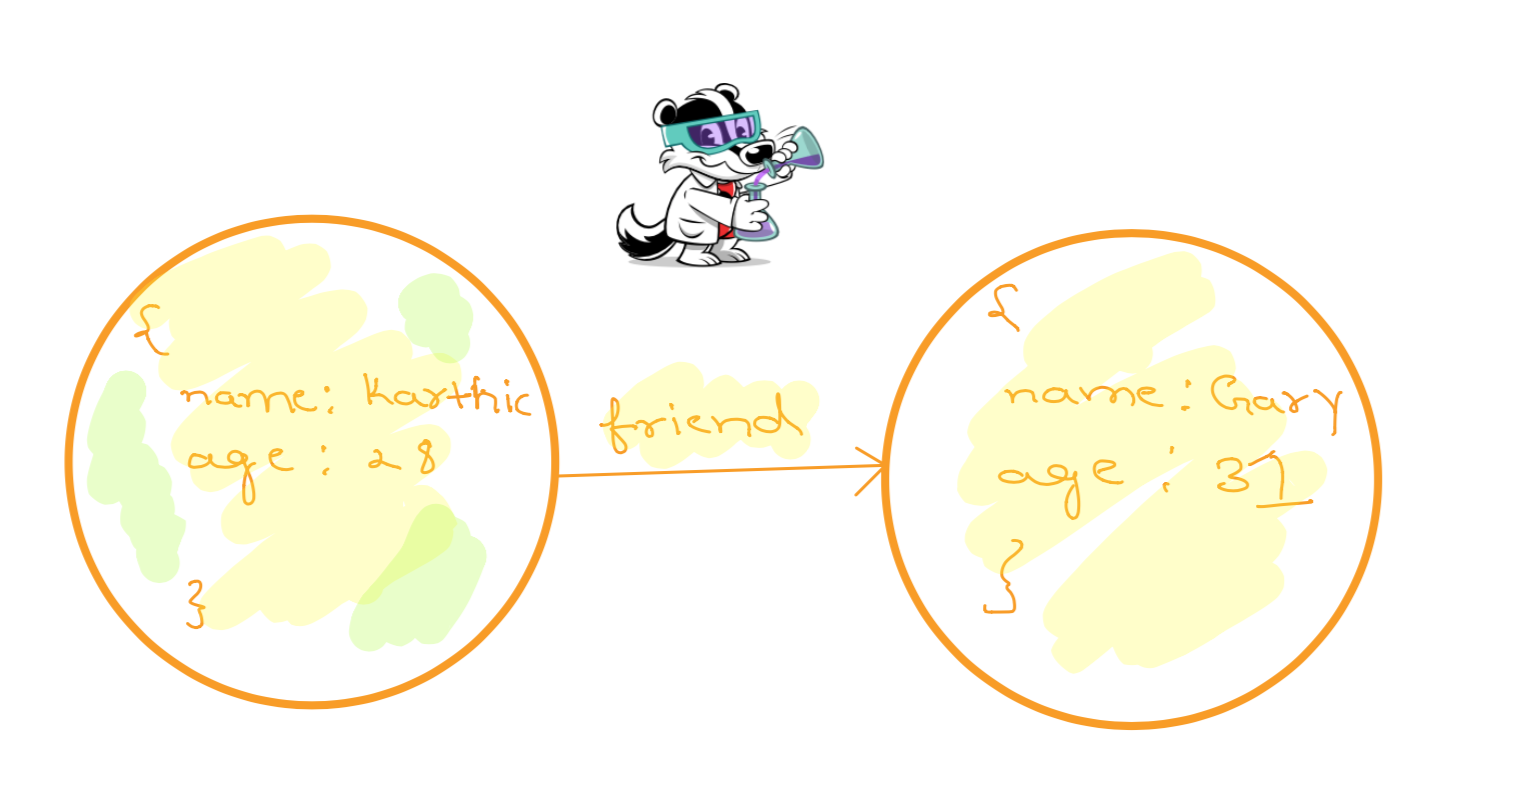 {
name: Karthic
age: 28
}
friend
{
name: Gary
age: 31
}